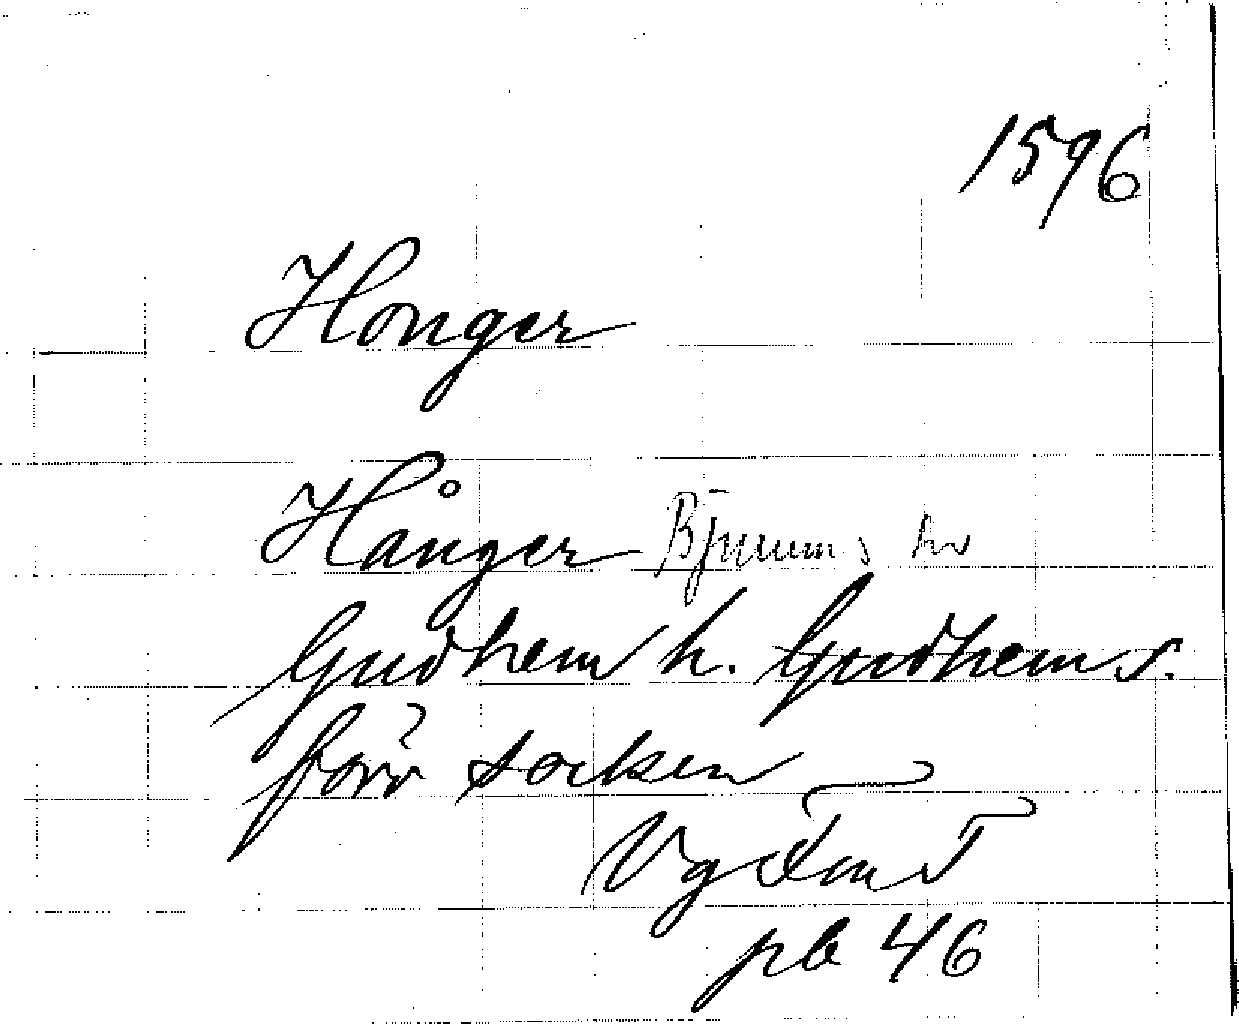 1596
Honger
Hånger Bjurums hv
Gudhem h. Gudhem s.
förr socken
Vg
pb 46